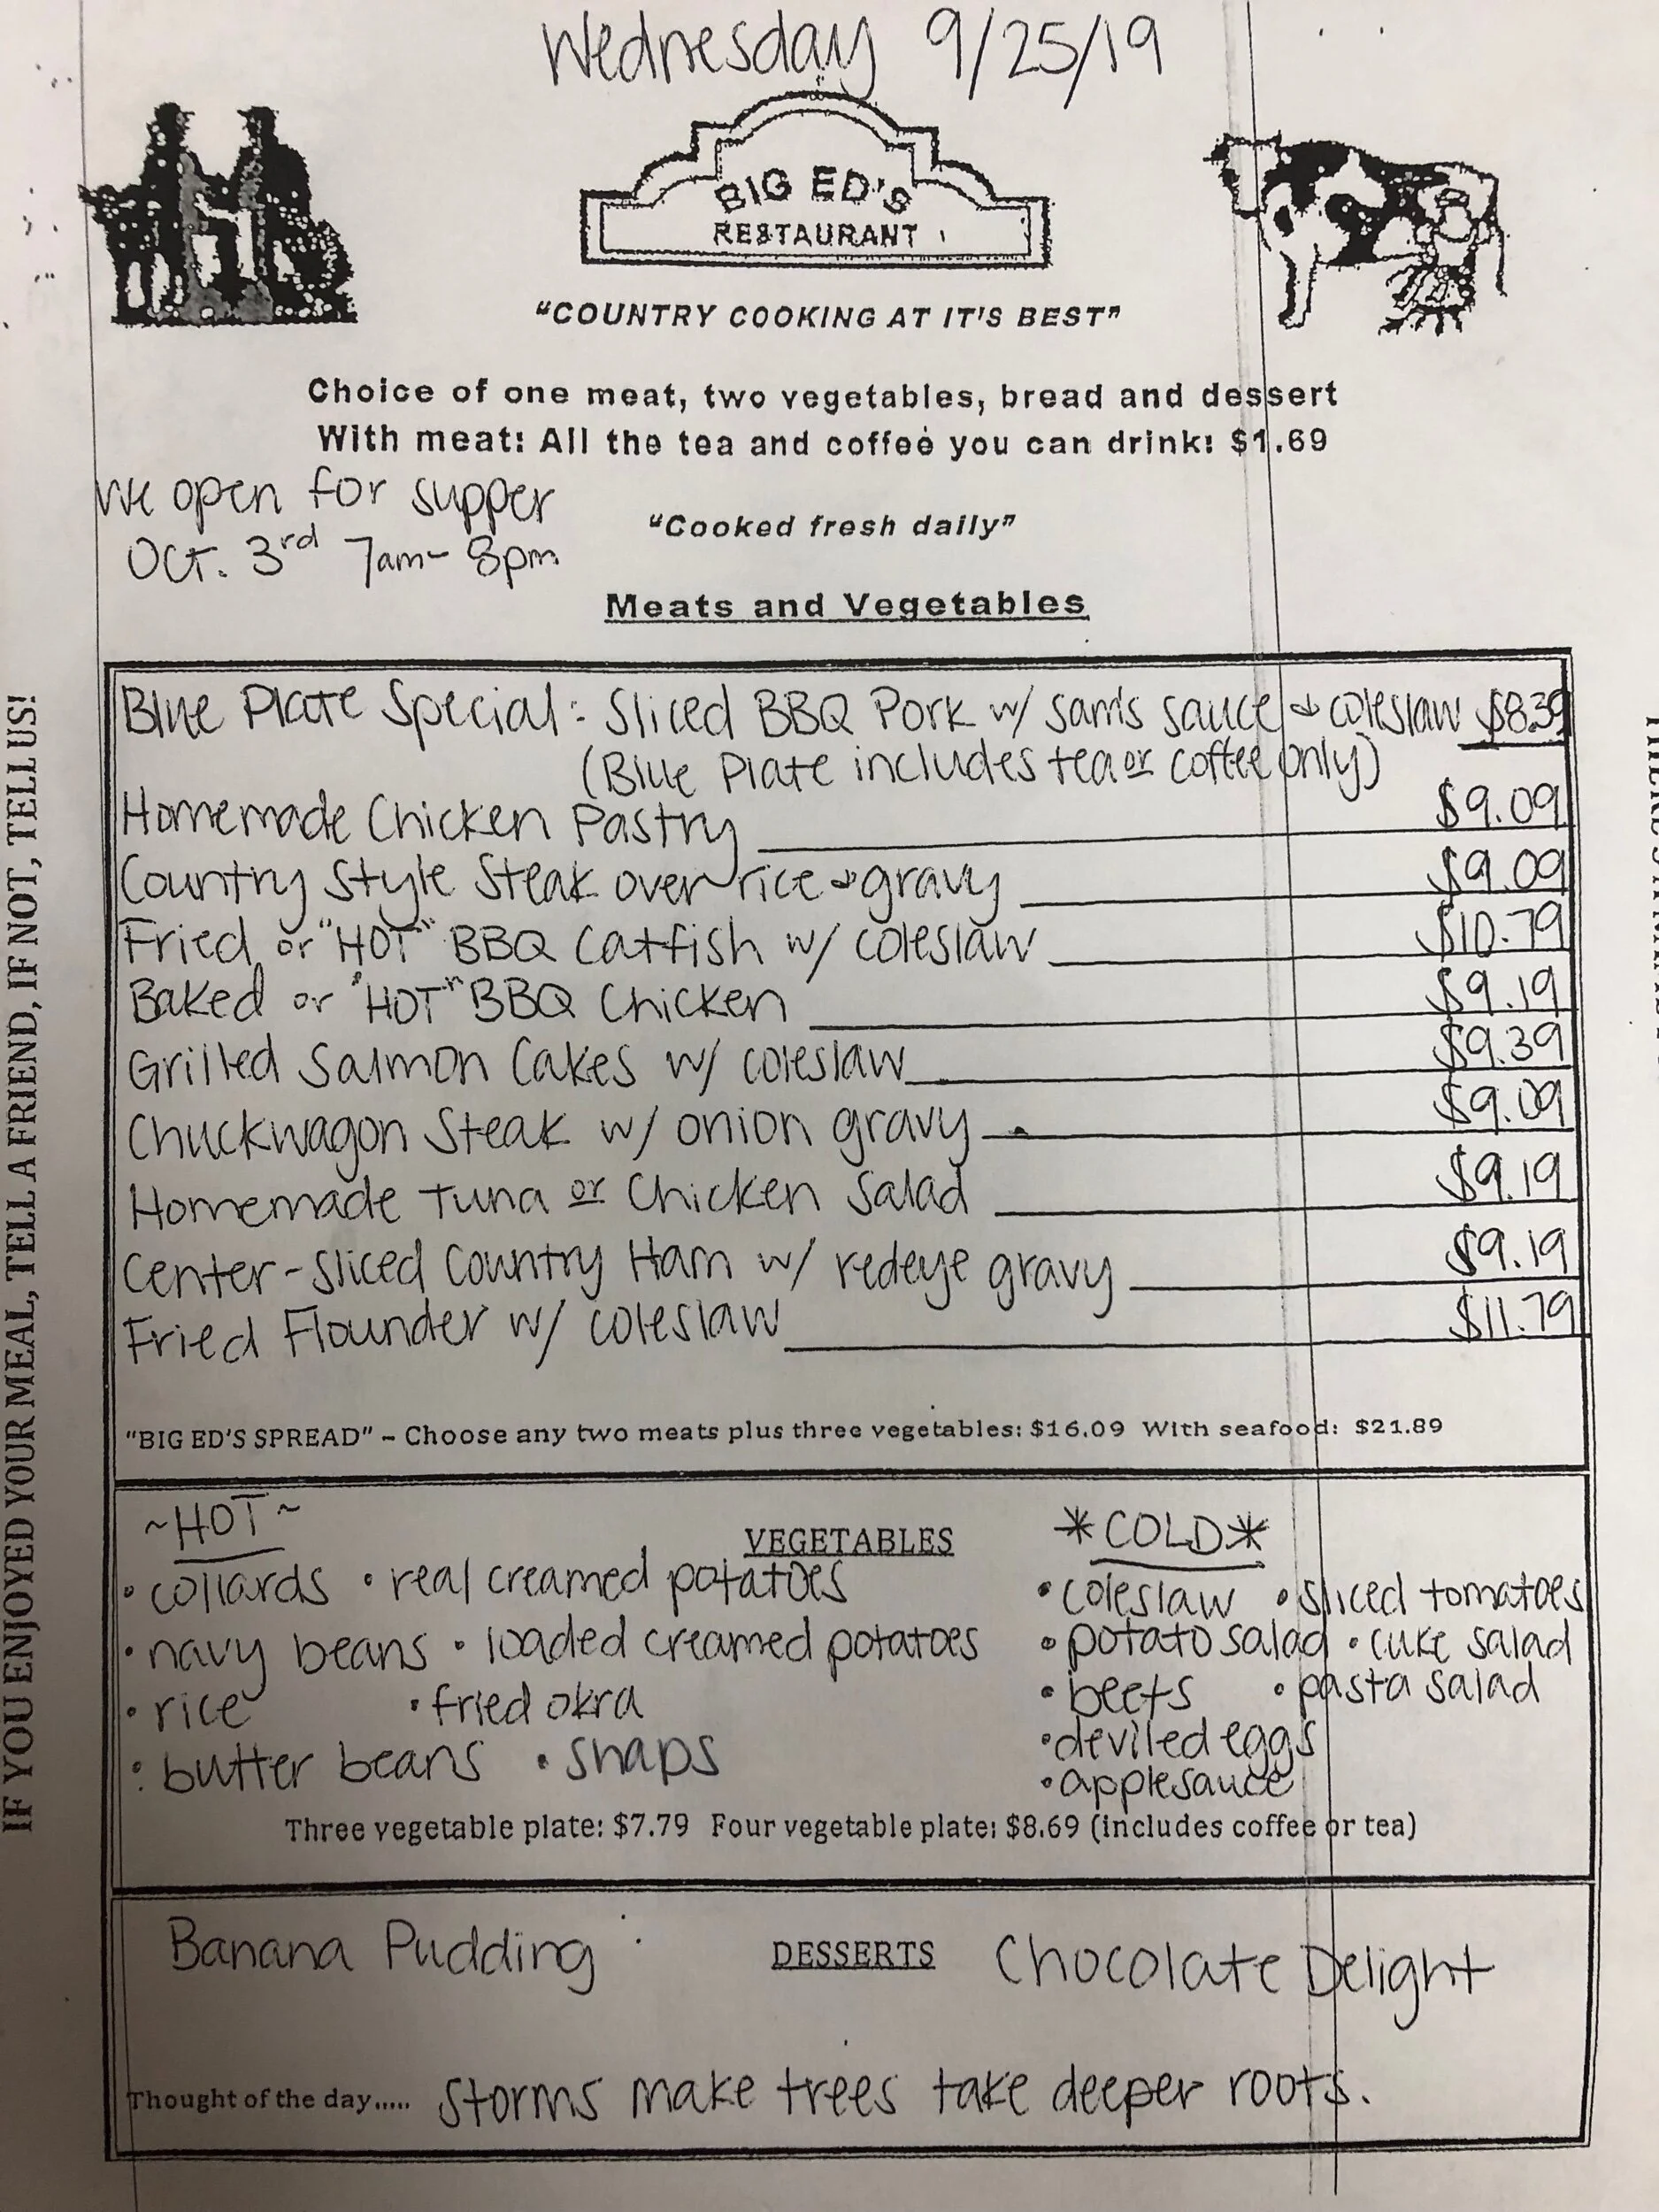 Wednesday 9/25/19
BIG ED'S
RESTAURANT
"COUNTRY COOKING AT IT'S BEST"
Choice of one meat, two vegetables, bread and dessert
With meat: All the tea and coffee you can drink: $1.69
We open for supper
Oct. 3rd 7am- 8pm
"Cooked fresh daily"
Meats and Vegetables
Blue Plate Special: Sliced BBQ Pork w/ Sam's sauce & coleslaw $8.39
(Blue Plate includes tea or coffee only)
Homemade Chicken Pastry $9.09
Country Style Steak over rice & gravy $9.09
Fried or "HOT" BBQ Catfish w/ coleslaw $10.79
Baked or "HOT" BBQ Chicken $9.19
Grilled Salmon Cakes w/ coleslaw $9.39
Chuckwagon Steak w/ onion gravy $9.09
Homemade Tuna or Chicken Salad $9.19
Center-Sliced Country Ham w/ redeye gravy $9.19
Fried Flounder w/ coleslaw $11.79
"BIG ED'S SPREAD" – Choose any two meats plus three vegetables: $16.09 With seafood: $21.89
~HOT~ VEGETABLES *COLD*
• collards • real creamed potatoes • coleslaw • sliced tomatoes
• navy beans • loaded creamed potatoes • potato salad • cuke salad
• rice • fried okra • beets • pasta salad
• butter beans • snaps • deviled eggs
• applesauce
Three vegetable plate: $7.79 Four vegetable plate: $8.69 (includes coffee or tea)
Banana Pudding DESSERTS Chocolate Delight
Thought of the day..... Storms make trees take deeper roots.
IF YOU ENJOYED YOUR MEAL, TELL A FRIEND, IF NOT, TELL US!